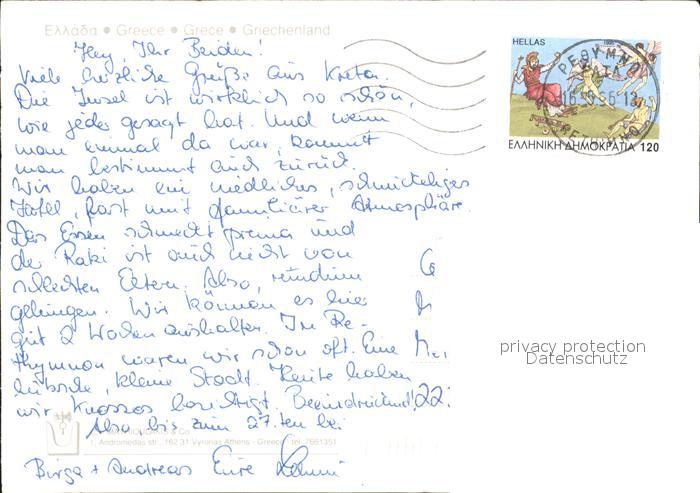 Ελλάδα • Greece • Grece • Griechenland
Hey, Ihr Beiden!
Viele herzliche Grüße aus Kreta.
Die Insel ist wirklich so schön,
wie jeder gesagt hat. Und wenn
man einmal da war, kommt
man bestimmt auch zurück.
Wir haben ein niedliches, schnuckeliges
Hotel, fast mit familiärer Atmosphäre.
Das Essen schmeckt prima und
der Raki ist auch nicht von
schlechten Eltern. Also, rundum
gelungen. Wir können es hier
gut 2 Wochen aushalten. In Re-
thymnon waren wir schon oft. Eine
hübsche, kleine Stadt. Heute haben
wir Knossos besichtigt. Beeindruckend!
Also bis zum 27.ten bei
Birga + Andreas Eure
& Co
1, Andromedas str., 162 31 Vyronas Athens - Greece, tel: 7661351
HELLAS
1995
ΡΕΘΥΜΝΟ
ΕΛΛΗΝΙΚΗ ΔΗΜΟΚΡΑΤΙΑ 120
22
privacy protection
Datenschutz